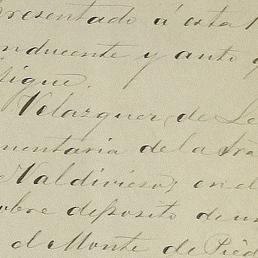 presentado á esta
nducente y anto
sigue.
Velázquez de Le
mentaria de la
Valdivieso, en el
bre deposito de un
el Monte de Pied